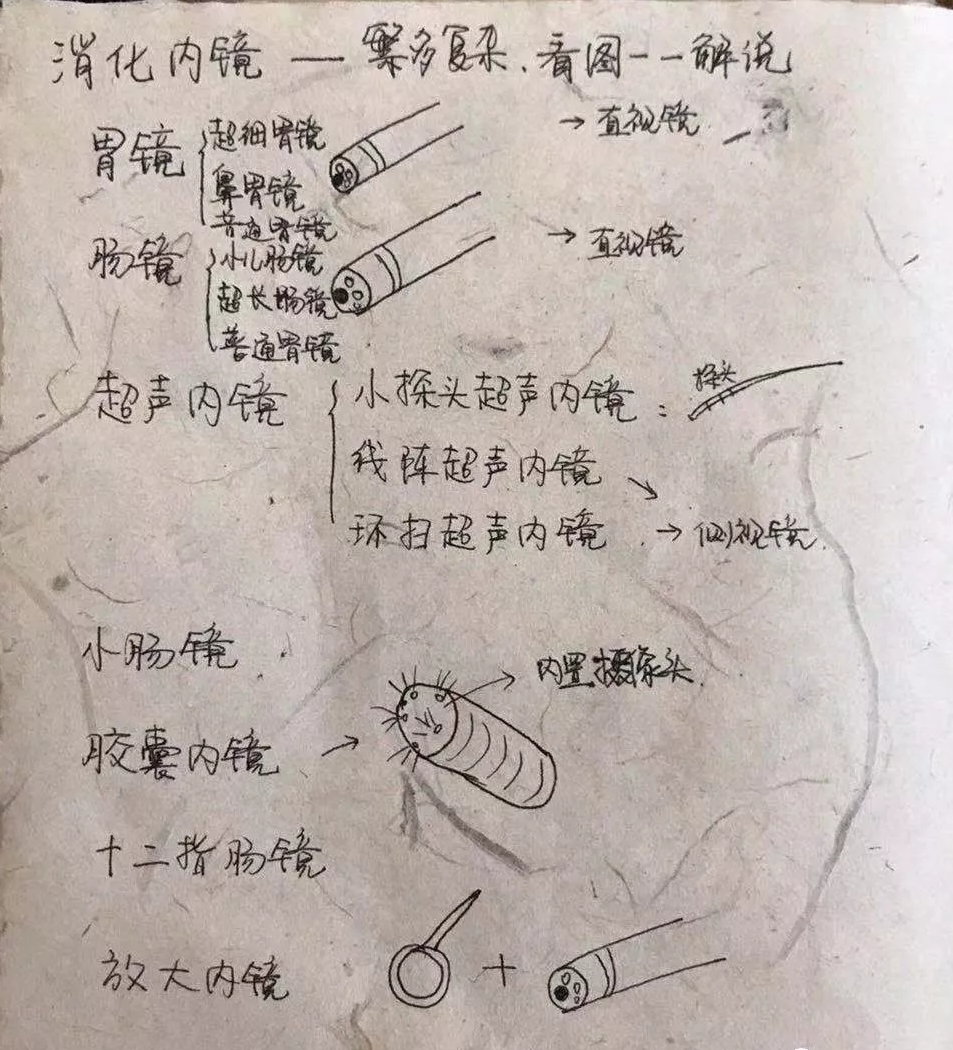 消化内镜 — 繁多复杂、看图一一解说
胃镜
超细胃镜
鼻胃镜
普通胃镜
→ 直视镜
肠镜
小儿肠镜
超长肠镜
普通胃镜
→ 直视镜
超声内镜
小探头超声内镜：
探头
线阵超声内镜
环扫超声内镜 → 侧视镜
小肠镜
内置摄像头
胶囊内镜 →
十二指肠镜
放大内镜
+